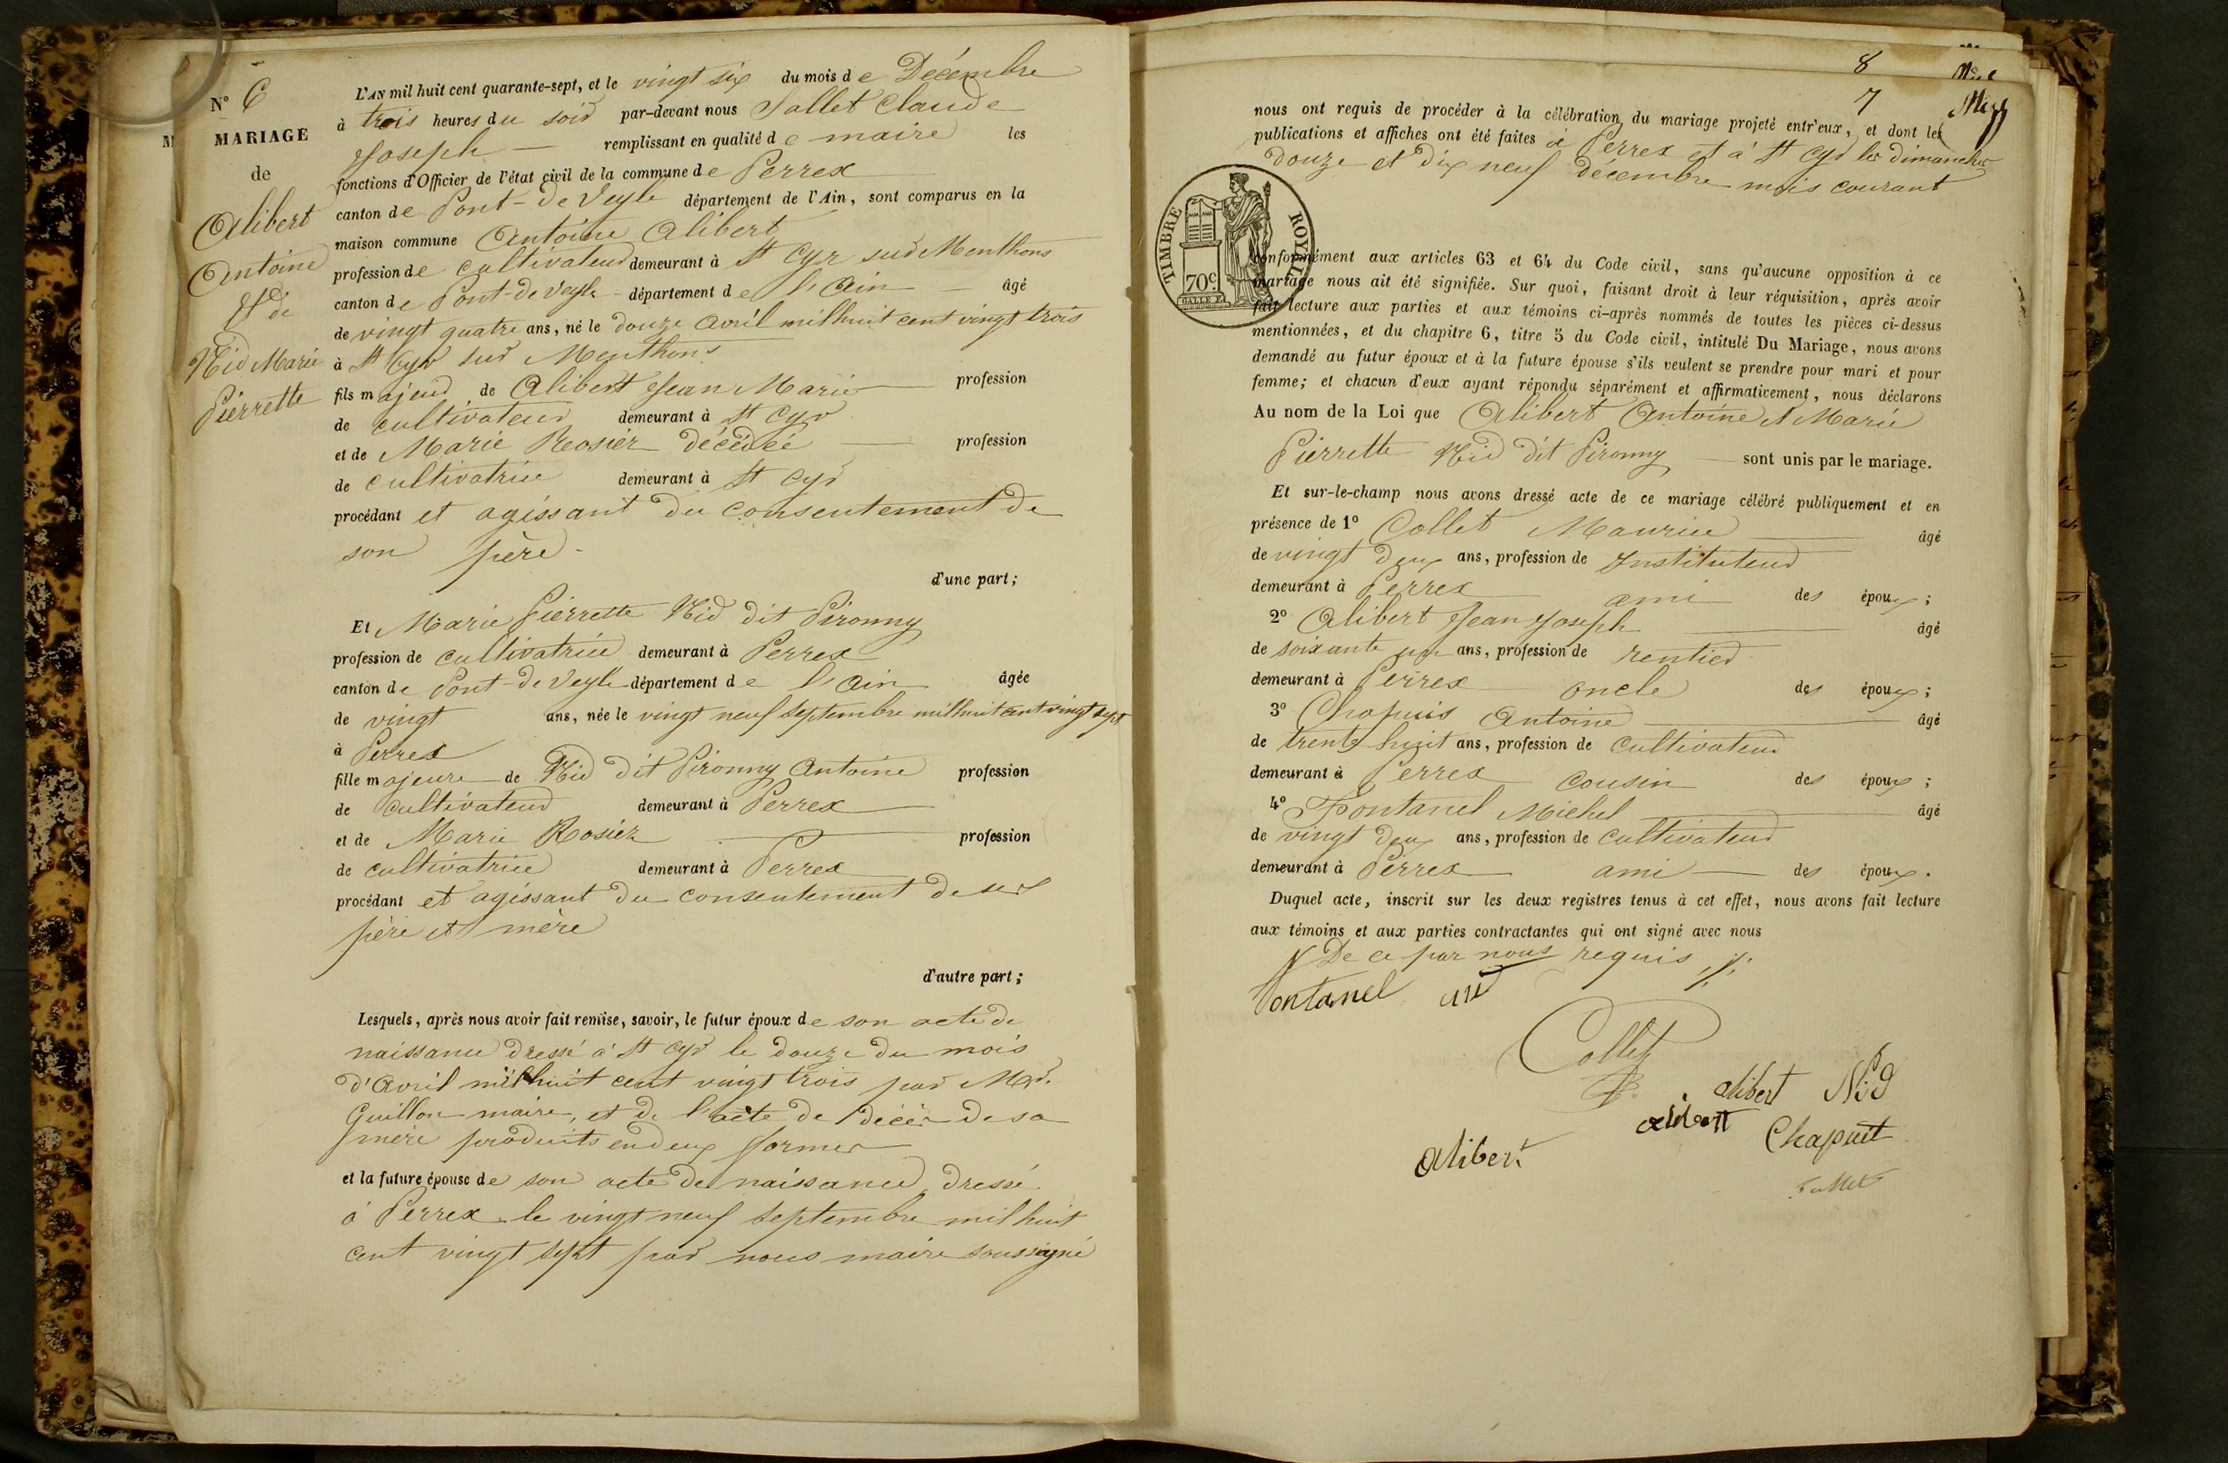 N° 6
MARIAGE
de
Alibert
Antoine
Et de
Nid Marie
Pierrette
L'AN mil huit cent quarante-sept, et le vingt six du mois de Décembre
à trois heures du soir par-devant nous Sallet Claude
Joseph remplissant en qualité de maire les
fonctions d'Officier de l'état civil de la commune de Perrex
canton de Pont-de Veyle département de l'Ain, sont comparus en la
maison commune Antoine Alibert
profession de cultivateur demeurant à St Cyr sur Menthons
canton de Pont-de Veyle département de l'Ain âgé
de vingt quatre ans, né le douze avril mil huit cent vingt trois
à St Cyr sur Menthons
fils majeur de Alibert Jean Marie profession
de cultivateur demeurant à St Cyr
et de Marie Rosier décédée profession
de cultivatrice demeurant à St Cyr
procédant et agissant du consentement de
son père
d'une part;
Et Marie Pierrette Nid dit Pironny
profession de cultivatrice demeurant à Perrex
canton de Pont-de Veyle département de l'Ain âgée
de vingt ans, née le vingt neuf septembre mil huit cent vingt sept
à Perrex
fille majeure de Nid dit Pironny Antoine profession
de cultivateur demeurant à Perrex
et de Marie Rosier profession
de cultivatrice demeurant à Perrex
procédant et agissant du consentement de ses
père et mère
d'autre part;
Lesquels, après nous avoir fait remise, savoir, le futur époux de son acte de
naissance dressé à St Cyr le douze du mois
d'Avril mil huit cent vingt trois par Mr.
Guillon maire, et de l'acte de décès de sa
mère produits en deux formes
et la future épouse de son acte de naissance dressé
à Perrex le vingt neuf septembre mil huit
cent vingt sept par nous maire soussigné
8
7
nous ont requis de procéder à la célébration du mariage projeté entr'eux, et dont les
publications et affiches ont été faites à Perrex et à St Cyr les dimanches
douze et dix neuf décembre mois courant
TIMBRE ROYAL
70c.
conformément aux articles 63 et 64 du Code civil, sans qu'aucune opposition à ce
mariage nous ait été signifiée. Sur quoi, faisant droit à leur réquisition, après avoir
fait lecture aux parties et aux témoins ci-après nommés de toutes les pièces ci-dessus
mentionnées, et du chapitre 6, titre 5 du Code civil, intitulé Du Mariage, nous avons
demandé au futur époux et à la future épouse s'ils veulent se prendre pour mari et pour
femme; et chacun d'eux ayant répondu séparément et affirmativement, nous déclarons
Au nom de la Loi que Alibert Antoine et Marie
Pierrette Nid dit Pironny sont unis par le mariage.
Et sur-le-champ nous avons dressé acte de ce mariage célébré publiquement et en
présence de 1° Collet Maurice âgé
de vingt deux ans, profession de Instituteur
demeurant à Perrex ami des époux;
2° Alibert Jean Joseph âgé
de soixante un ans, profession de rentier
demeurant à Perrex oncle des époux;
3° Chapuis Antoine âgé
de trente huit ans, profession de cultivateur
demeurant à Perrex cousin des époux;
4° Fontanel Michel âgé
de vingt deux ans, profession de cultivateur
demeurant à Perrex ami des époux.
Duquel acte, inscrit sur les deux registres tenus à cet effet, nous avons fait lecture
aux témoins et aux parties contractantes qui ont signé avec nous
De ce par nous requis
Fontanel
Collet
alibert Nid
alibert
Chapuit
Alibert
Sallet